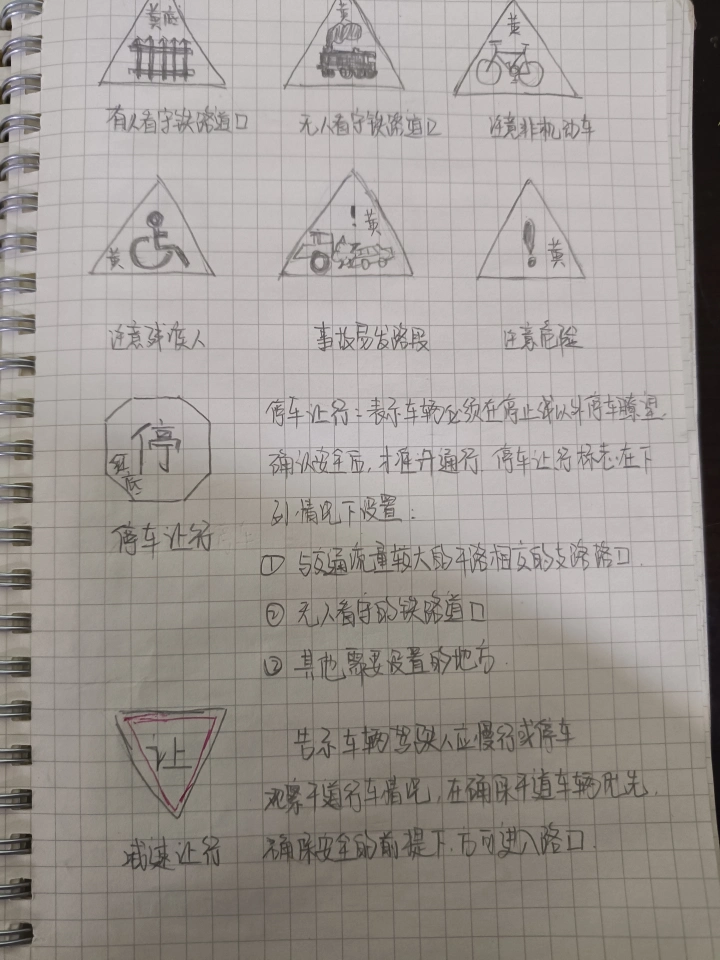 黄底
黄
黄
有人看守铁路道口
无人看守铁路道口
注意非机动车
黄
! 黄
! 黄
注意残疾人
事故易发路段
注意危险
停
红底
停车让行
停车让行:表示车辆必须在停止线以外停车瞭望,
确认安全后,才准许通行.停车让行标志在下
列情况下设置:
① 与交通流量较大的干路相交的支路路口.
② 无人看守的铁路道口
③ 其他需要设置的地方.
让
减速让行
告示车辆驾驶人应慢行或停车
观察干道行车情况,在确保干道车辆优先,
确保安全的前提下,方可进入路口.